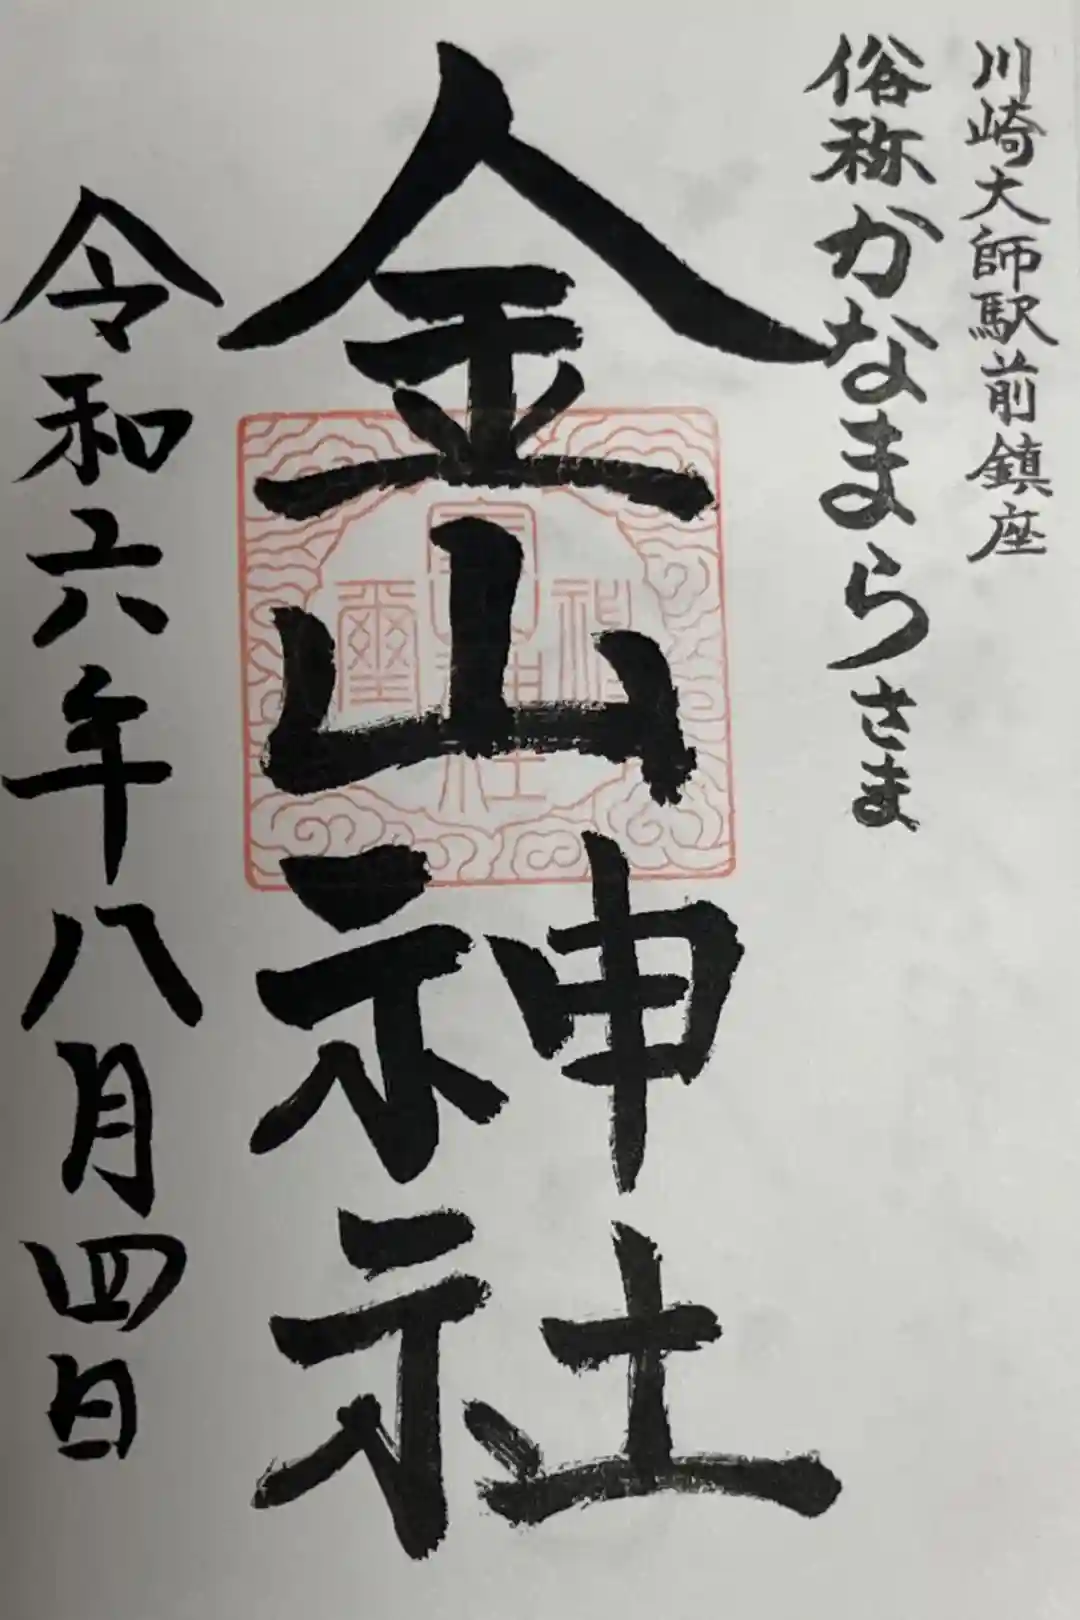 川崎大師駅前鎮座
俗称かなまらさま
金山神社
令和六年八月四日